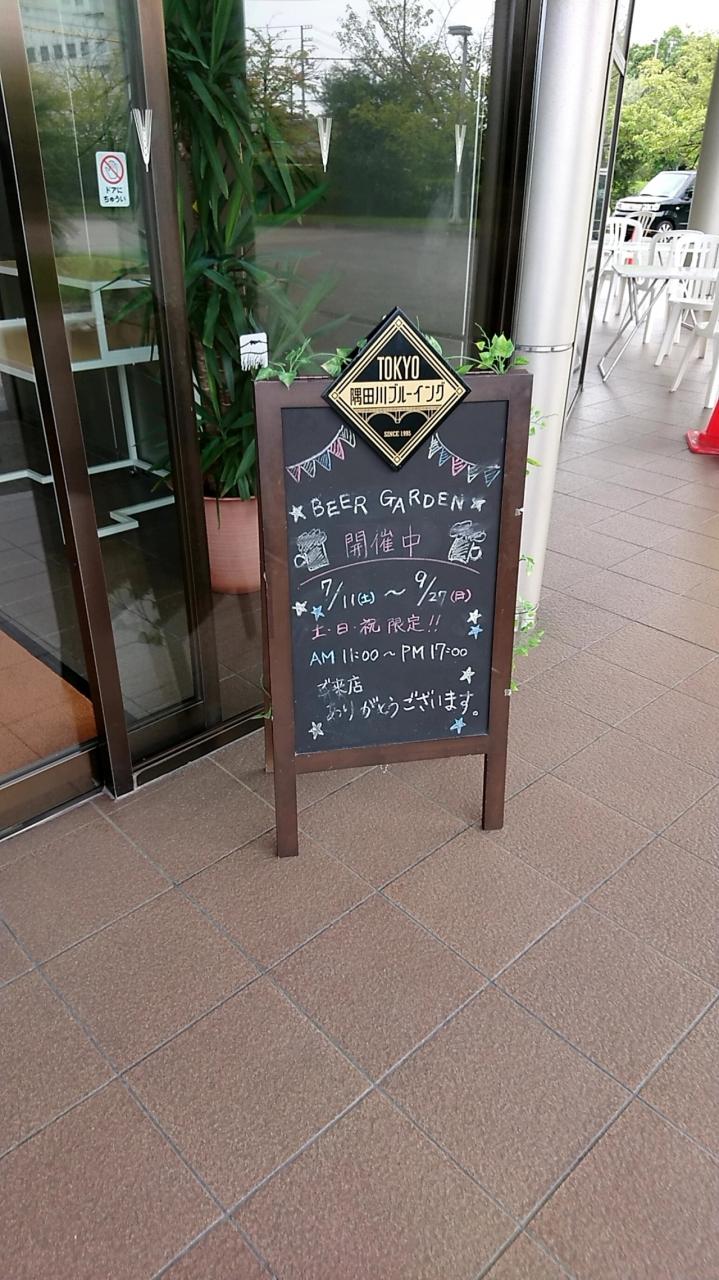 ドアに
ちゅうい
TOKYO
隅田川ブルーイング
SINCE 1995
BEER GARDEN
開催中
7/11(土)〜9/27(日)
土・日・祝 限定!!
AM 11:00〜PM 17:00
ご来店
ありがとうございます。